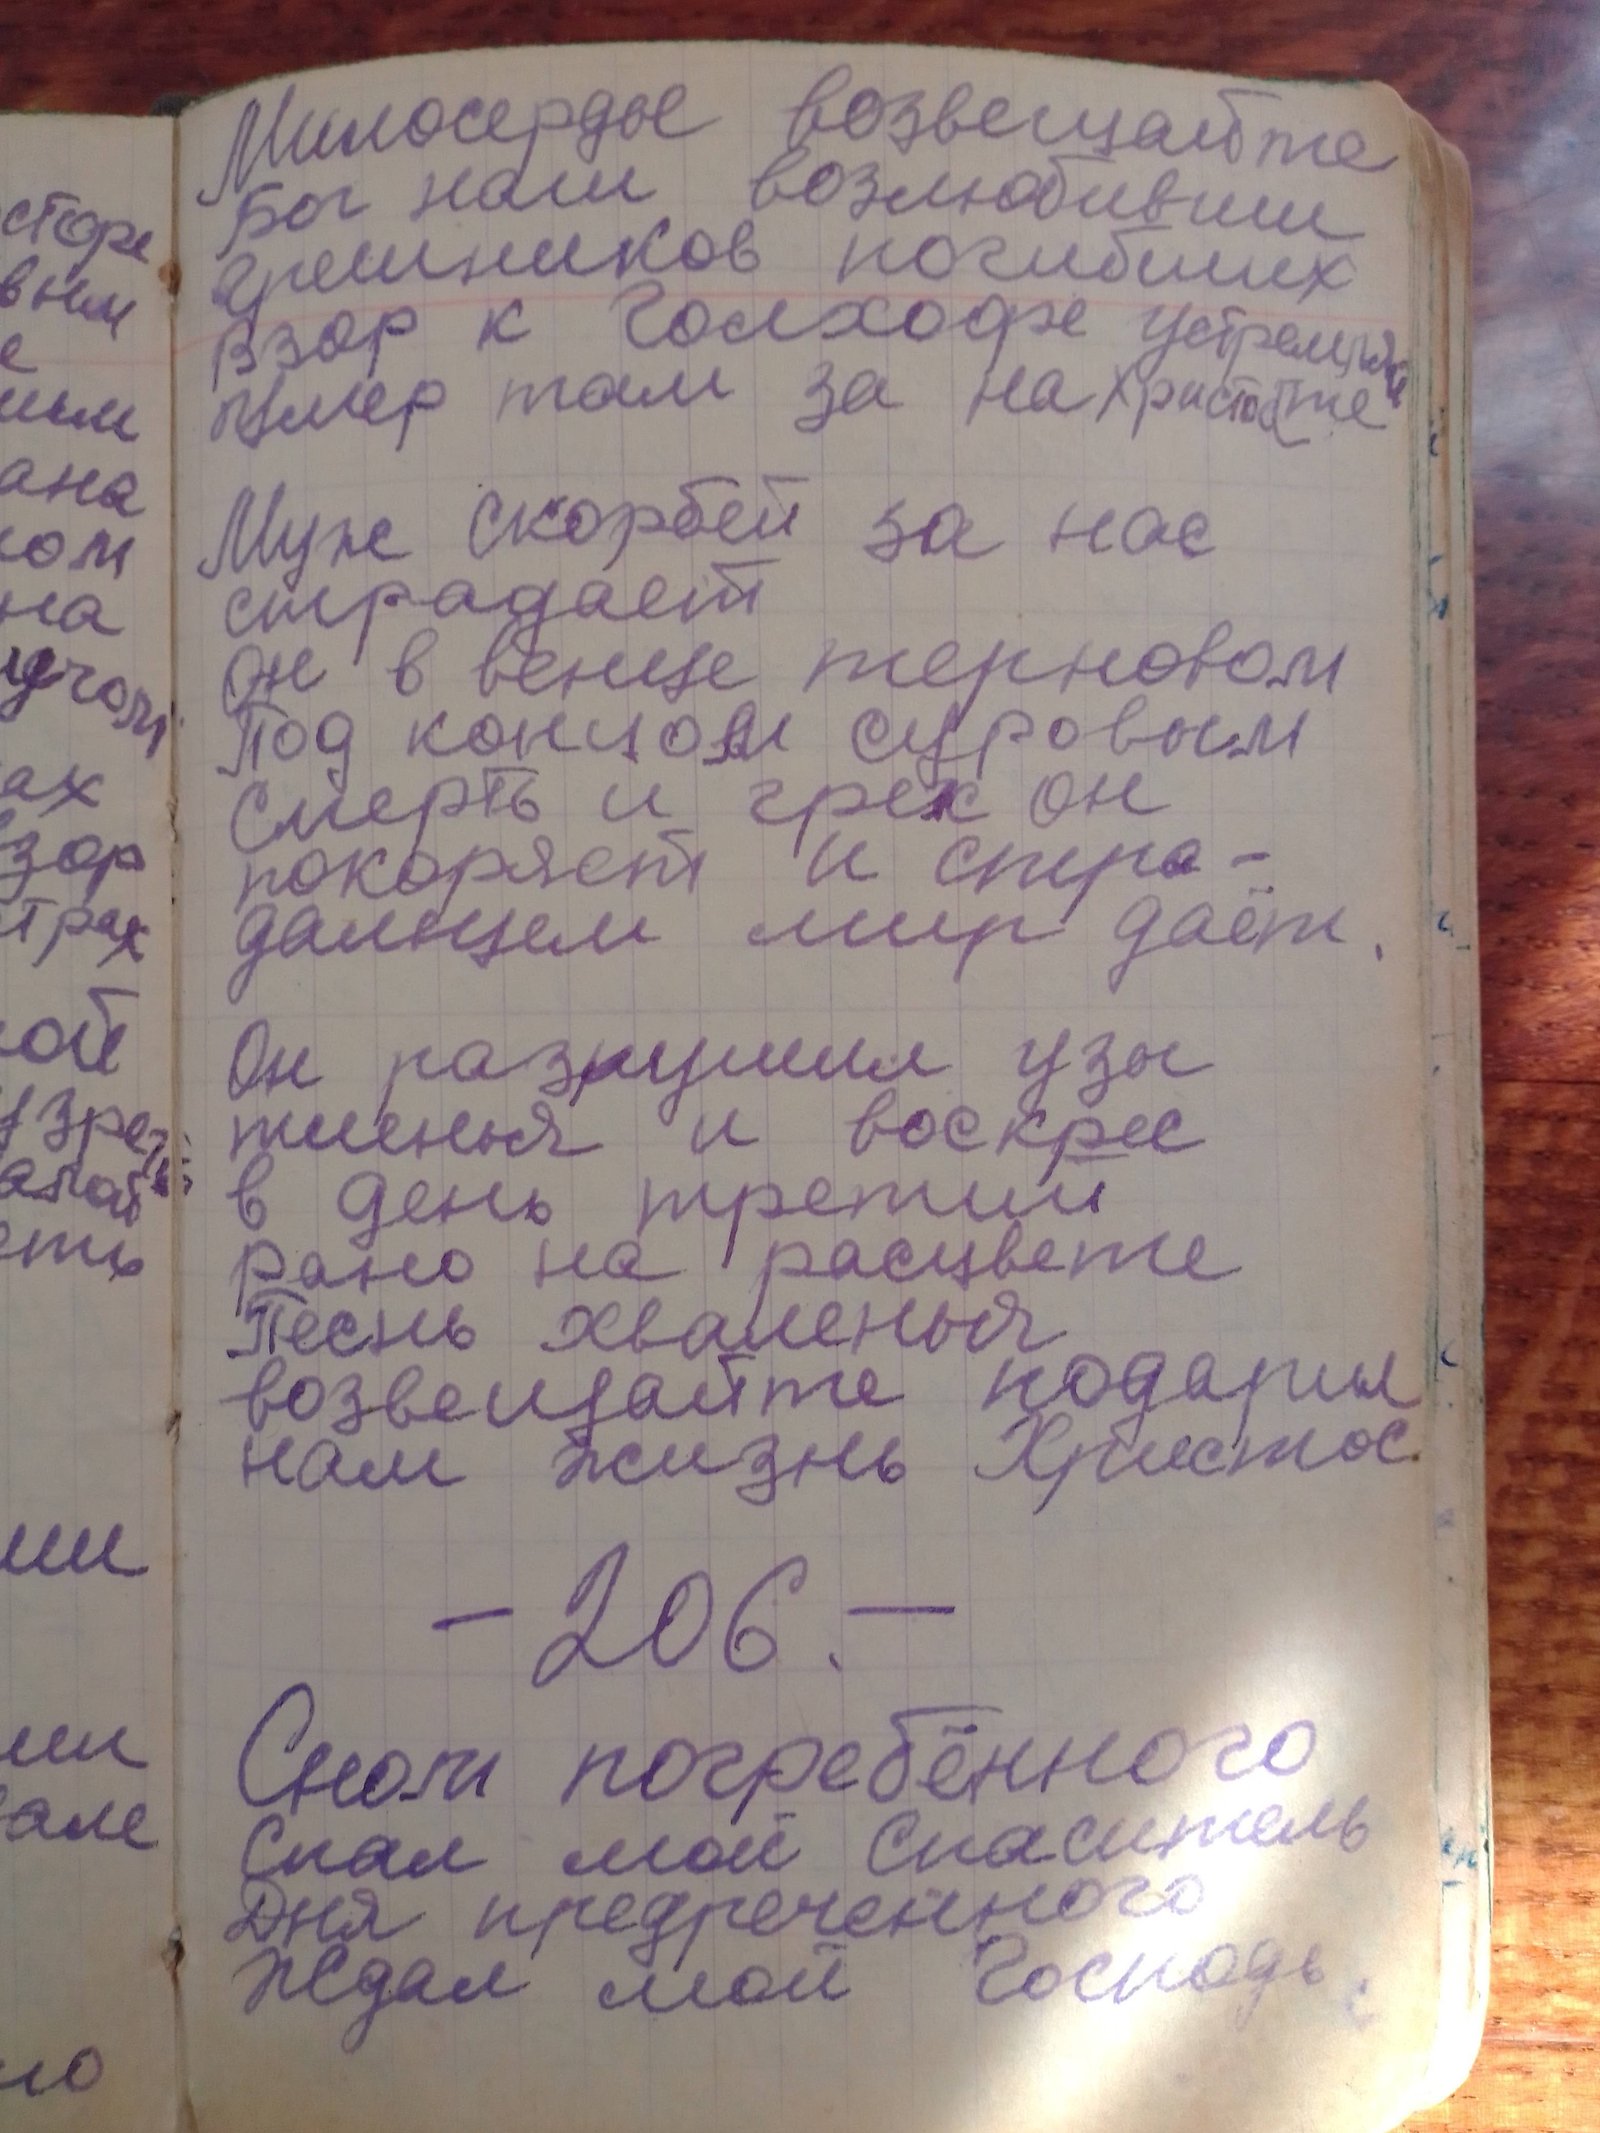 сторе
вним
е
ным
ана
ком
на
ах
взор
страх
кой
узреть
еть
ими
ими
вале
но
Милосердье возвещайте
Бог наш возлюбивши
грешников погибших
Взор к Голхофе устремляйте
Умер там за на Христос
Муж скорбей за нас
страдает
Он в венце терновом
Под концом суровым
Смерть и грех он
покоряет и стра-
дальцем мир даёт.
Он разрушил узы
тленья и воскрес
в день третий
рано на расцвете
Песнь хваленья
возвещайте подарил
нам жизнь Христос.
- 206. -
Сном погребённого
Спал мой Спаситель
Дня предреченного
Ждал мой Господь.